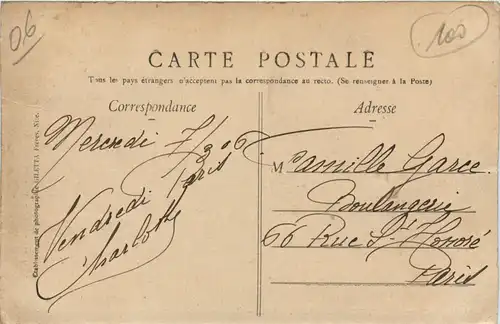 06
100
CARTE POSTALE
Tous les pays étrangers n'acceptent pas la correspondance au recto. (Se renseigner à la Poste)
Correspondance
Mercredi 7/3 06
Paris
Vendredi
Charlotte
Adresse
M Camille Garce
Boulangerie
66 Rue St Honoré
Paris
Etablissement de photographie GILETTA Frères, Nice.